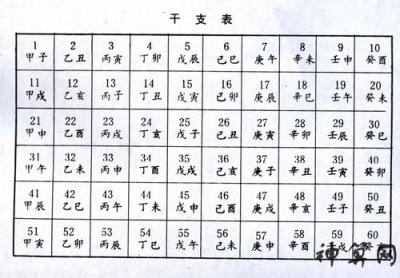 干支表
1 2 3 4 5 6 7 8 9 10
甲子 乙丑 丙寅 丁卯 戊辰 己巳 庚午 辛未 壬申 癸酉
11 12 13 14 15 16 17 18 19 20
甲戌 乙亥 丙子 丁丑 戊寅 己卯 庚辰 辛巳 壬午 癸未
21 22 23 24 25 26 27 28 29 30
甲申 乙酉 丙戌 丁亥 戊子 己丑 庚寅 辛卯 壬辰 癸巳
31 32 33 34 35 36 37 38 39 40
甲午 乙未 丙申 丁酉 戊戌 己亥 庚子 辛丑 壬寅 癸卯
41 42 43 44 45 46 47 48 49 50
甲辰 乙巳 丙午 丁未 戊申 己酉 庚戌 辛亥 壬子 癸丑
51 52 53 54 55 56 57 58 59 60
甲寅 乙卯 丙辰 丁巳 戊午 己未 庚申 辛酉 壬戌 癸亥
神算网